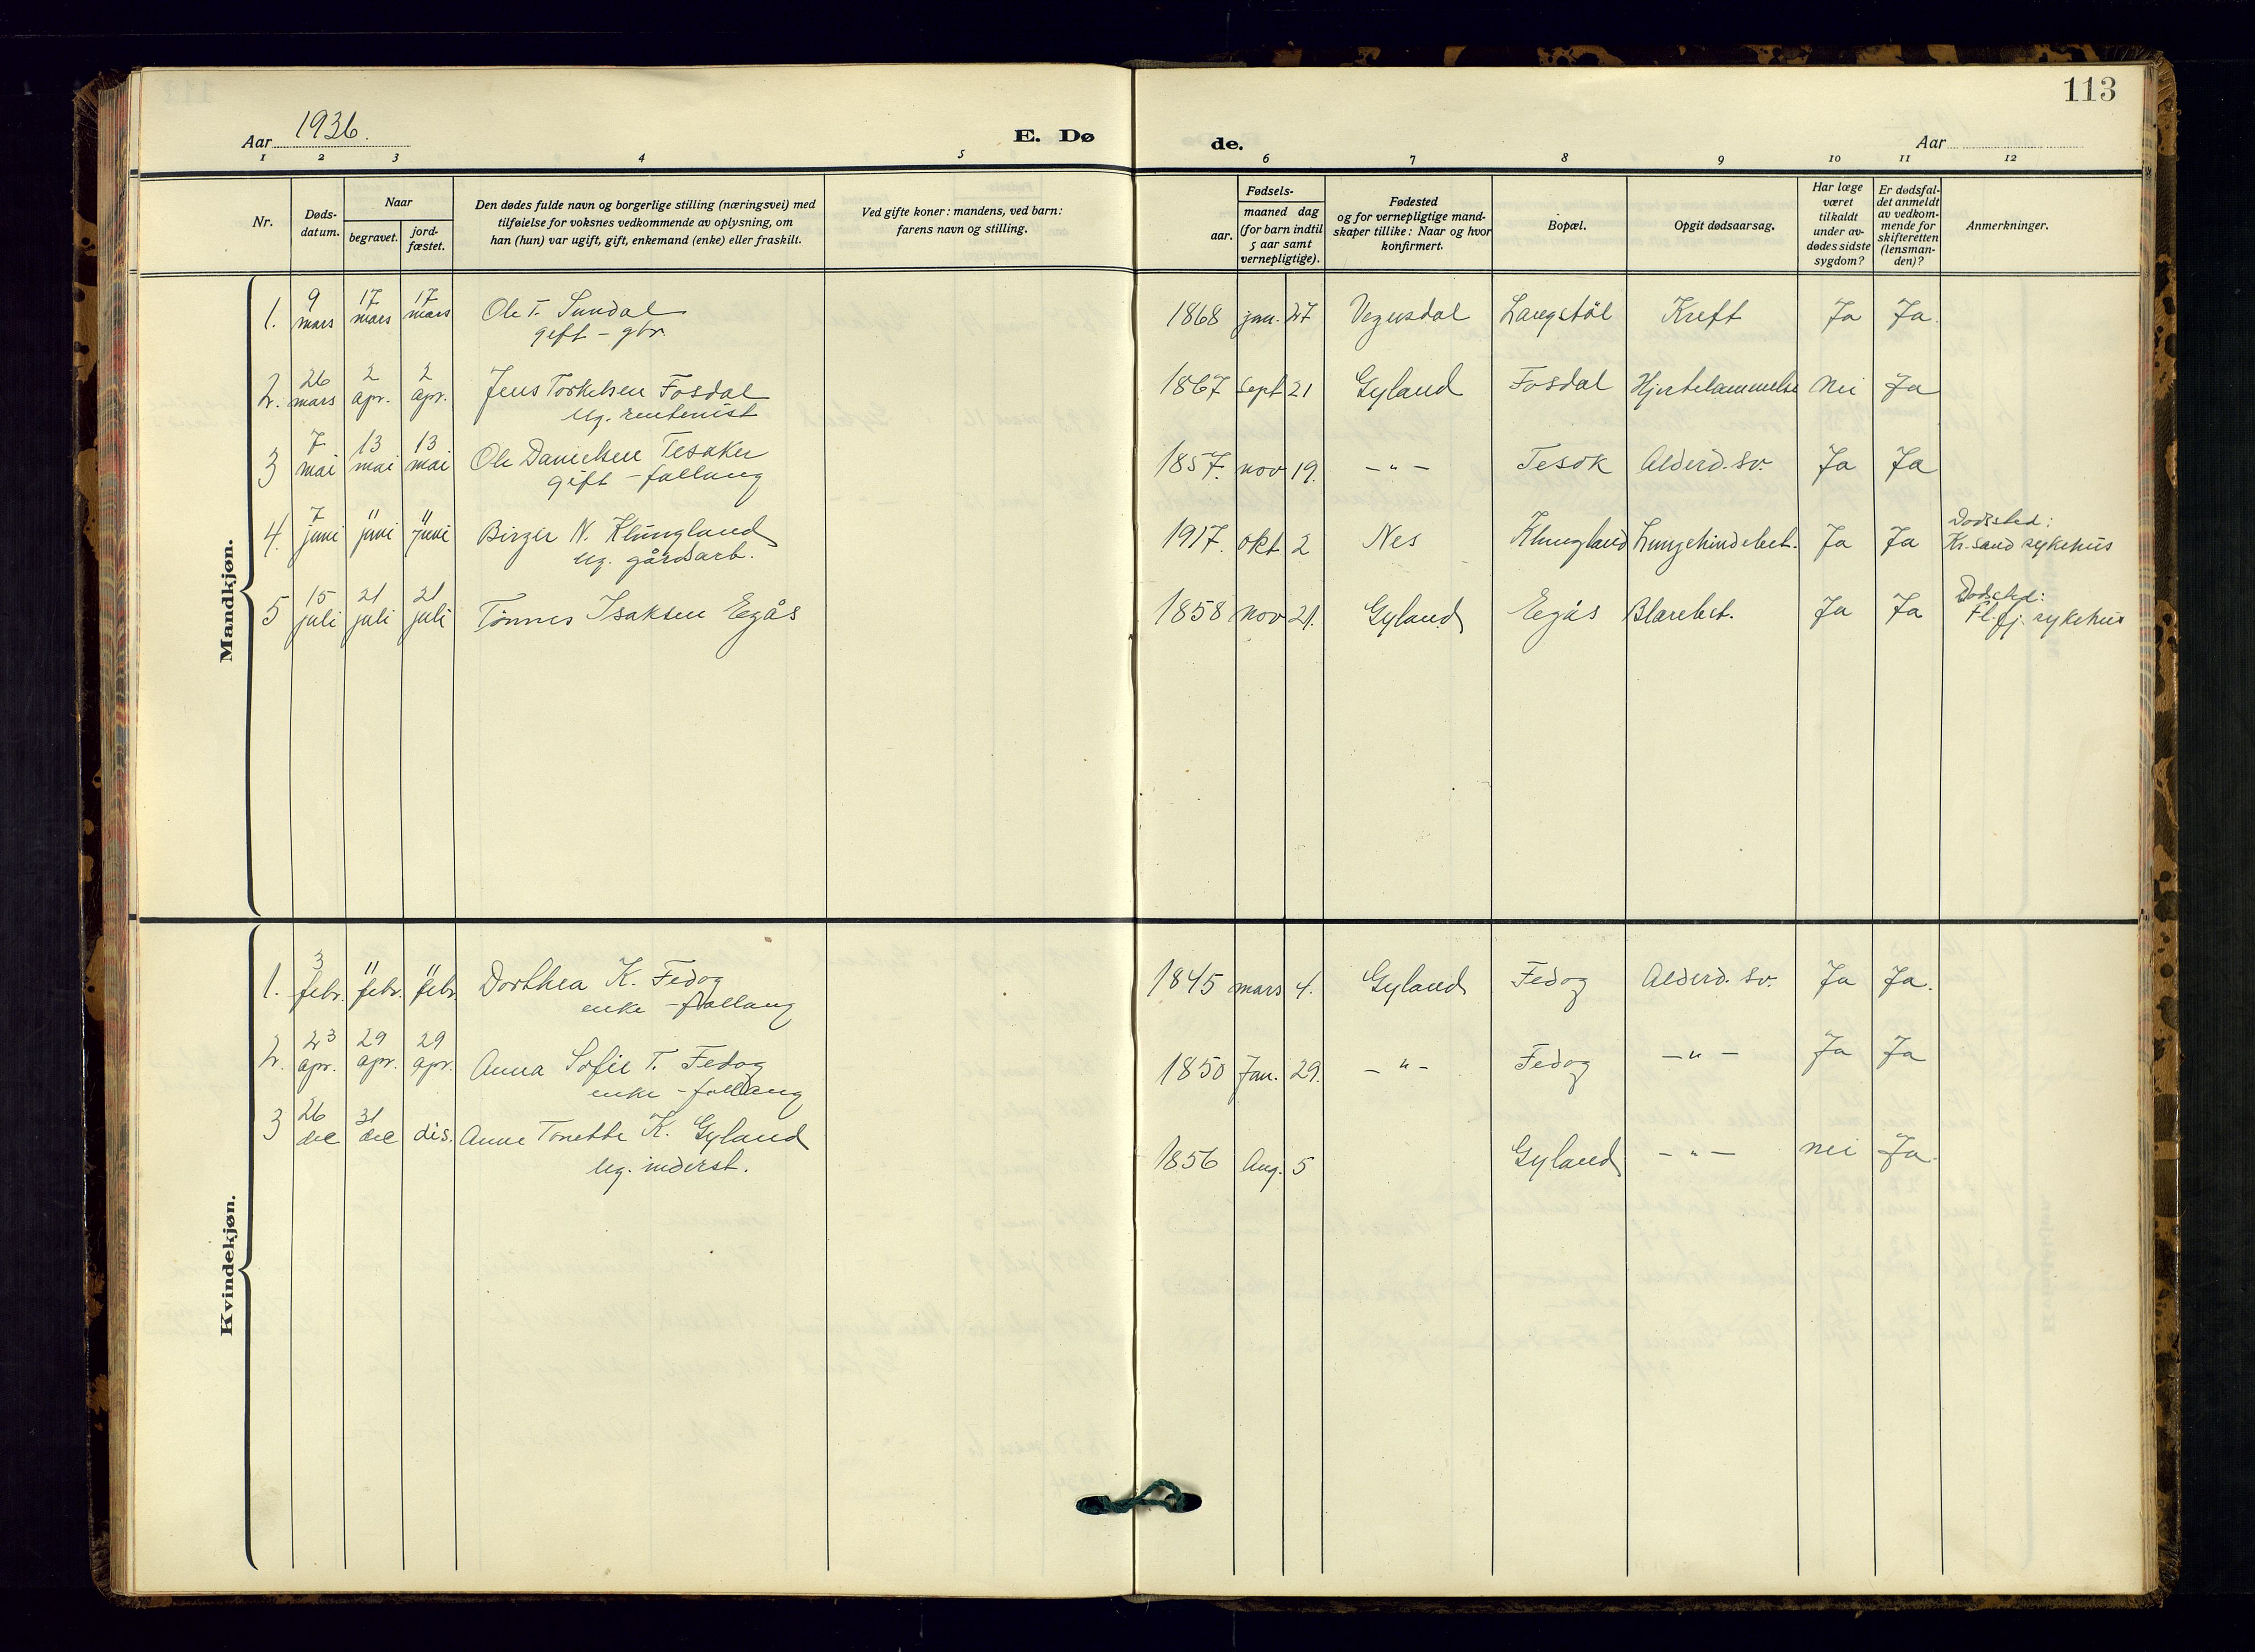 113
Aar 1936.
E. Dø
de.
Aar
1 2 3 4 5 6 7 8 9 10 11 12
Nr.
Døds-
datum.
Naar
begravet.
jord-
fæstet.
Den dødes fulde navn og borgerlige stilling (næringsvei) med
tilføielse for voksnes vedkommende av oplysning, om
han (hun) var ugift, gift, enkemand (enke) eller fraskilt.
Ved gifte koner: mandens, ved barn:
farens navn og stilling.
Fødsels-
aar.
maaned dag
(for barn indtil
5 aar samt
vernepligtige).
Fødested
og for vernepligtige mand-
skaper tillike: Naar og hvor
konfirmert.
Bopæl.
Opgit dødsaarsag.
Har læge
været
tilkaldt
under av-
dødes sidste
sygdom?
Er dødsfal-
det anmeldt
av vedkom-
mende for
skifteretten
(lensman-
den)?
Anmerkninger.
Mandkjøn.
1. 9 mars 17 mars 17 mars Ole T. Sundal 1868 jan. 27 Vegusdal Langstöl Kreft Ja Ja.
gift - gbr.
2. 26 mars 2 apr. 2 apr. Jens Torkelsen Fosdal 1867 Sept 21 Gyland Fosdal Hjertelammelse Nei Ja
Ug. rentenist
3 7 mai 13 mai 13 mai Ole Danielsen Tesaker 1857. nov 19. - " - Tesok Alderd. sv. Ja Ja
gift - follaug
4. 7 juni 11 juni 11 juni Birger N. Klungland 1917. okt 2 Nes Klungland Lungehindebet. Ja Ja Dodssted:
Kr.sand sykehus
Ug. gårdsarb.
5 15 juli 21 juli 21 juli Tønnes Isaksen Eegås 1858 nov 21. Gyland Eegås Blærebet. Ja Ja Dodssted:
Fl.fj. sykehus
Kvindekjøn.
1. 3 febr. 11 febr. 11 febr. Dorthea K. Fedog 1845 mars 4. Gyland Fedog Alderd. sv. Ja Ja.
enke - follaug
2. 23 apr. 29 apr. 29 apr. Anna Sofie T. Fedog 1850 Jan. 29. - " - Fedog - " - Ja Ja
enke - follaug
3 26 dec 31 dec dis. Anne Tonette K. Gyland 1856 Aug. 5 Gyland - " - nei Ja.
Ug. inderst.